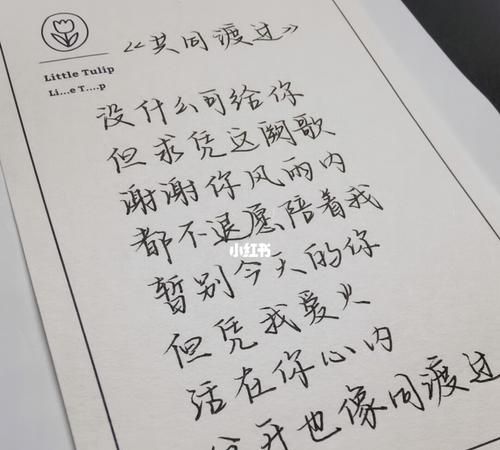 《共同渡过》
Little Tulip
Li...e T....p
没什么可给你
但求凭这阙歌
谢谢你风雨内
都不退愿陪着我
小红书
暂别今天的你
但凭我爱火
活在你心内
分开也像同渡过